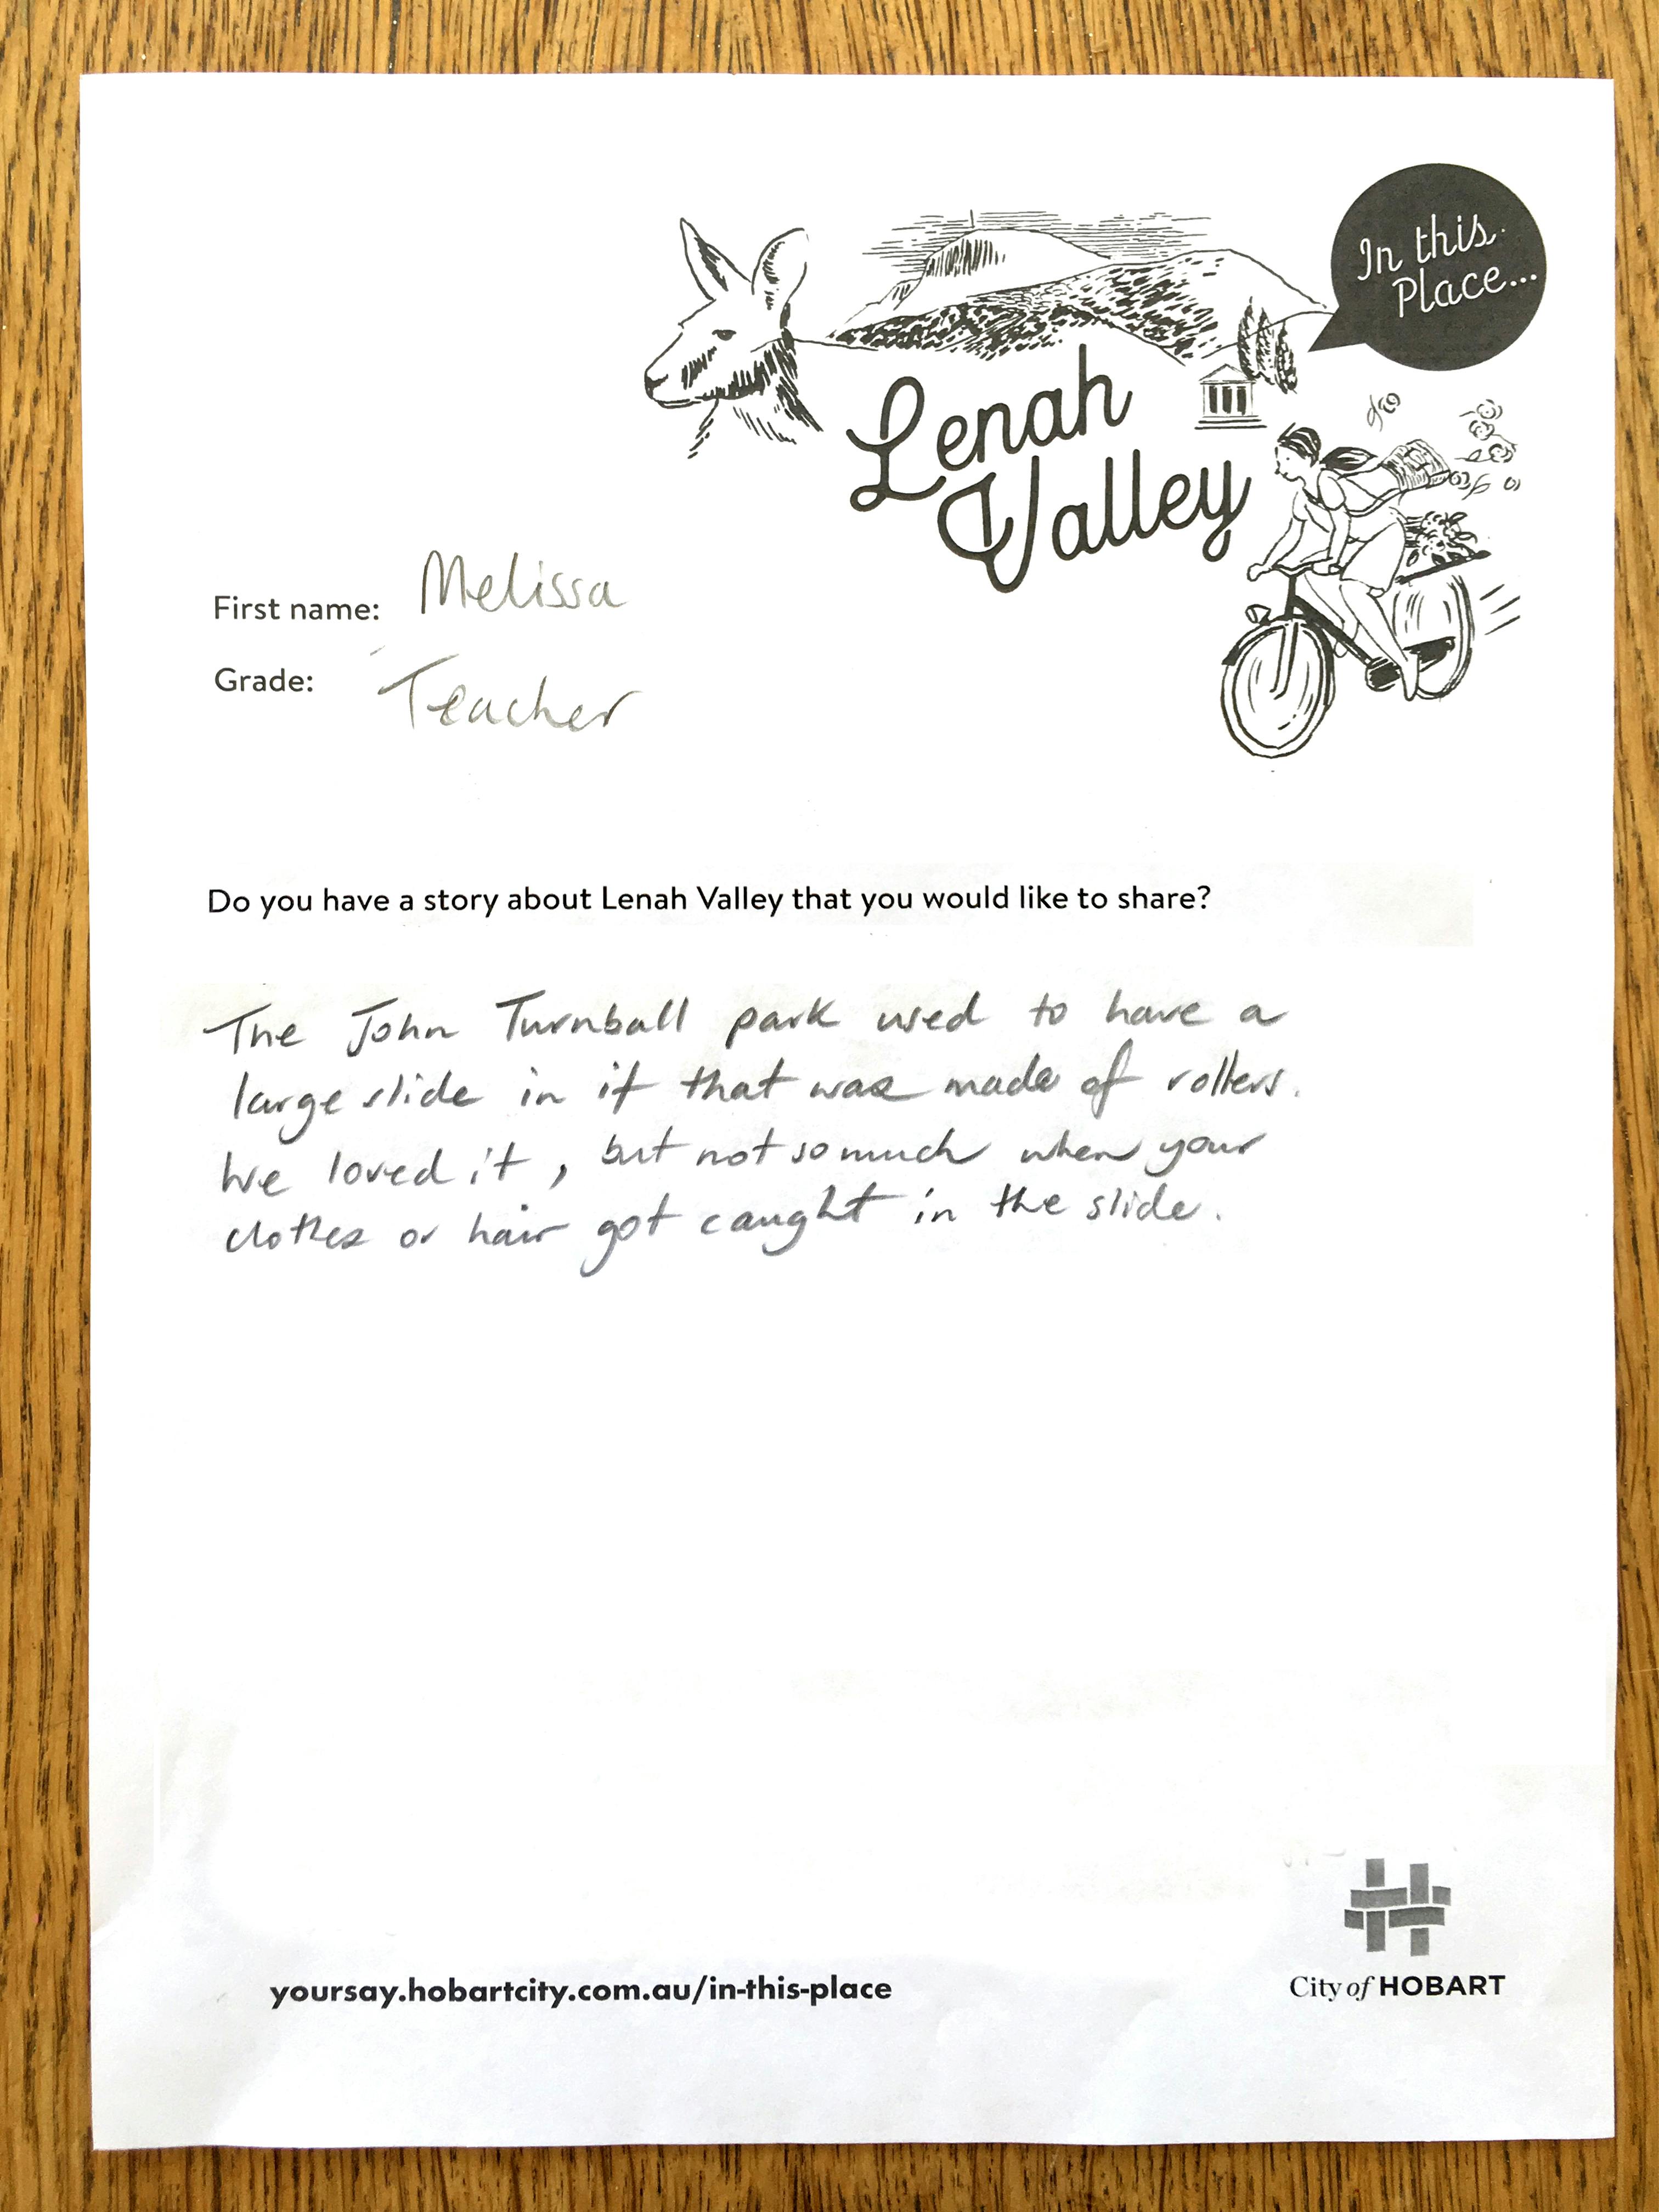 In this
Place...
Lenah
Valley
First name: Melissa
Grade: Teacher
Do you have a story about Lenah Valley that you would like to share?
The John Turnball park used to have a
large slide in it that was made of rollers.
We loved it, but not so much when your
clothes or hair got caught in the slide.
yoursay.hobartcity.com.au/in-this-place
City of HOBART